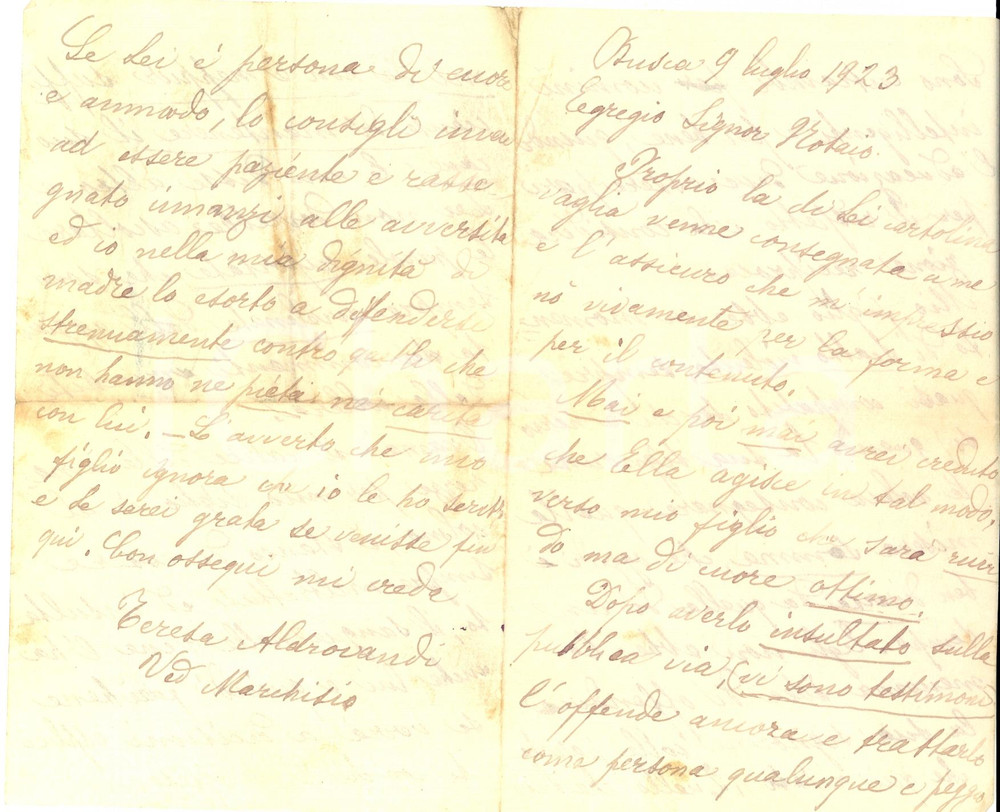 Busca 9 luglio 1923
Egregio Signor Notaio.
Proprio la di Lei cartolina
vaglia venne consegnata a me
e l'assicuro che m'impressio
nò vivamente per la forma e
per il contenuto.
Mai e poi mai avrei creduto
che Ella agisce in tal modo
verso mio figlio che sarà ruvi
do ma di cuore ottimo.
Dopo averlo insultato sulla
pubblica via, (vi sono testimoni
l'offende ancora e trattarlo
come persona qualunque e peggio
Se Lei é persona di cuore
e a modo, lo consigli
ad essere paziente e rasse
gnato innanzi alle avversità
ed io nella mia dignità di
madre lo esorto a difendersi
strenuamente contro quelli che
non hanno ne pietà, né carità
con lui. - L'avverto che mio
figlio ignora io le ho scritto
e Le serei grata se venisse fin
qui. Con ossequi mi creda
Teresa Aldrovandi
Ved Marchisio